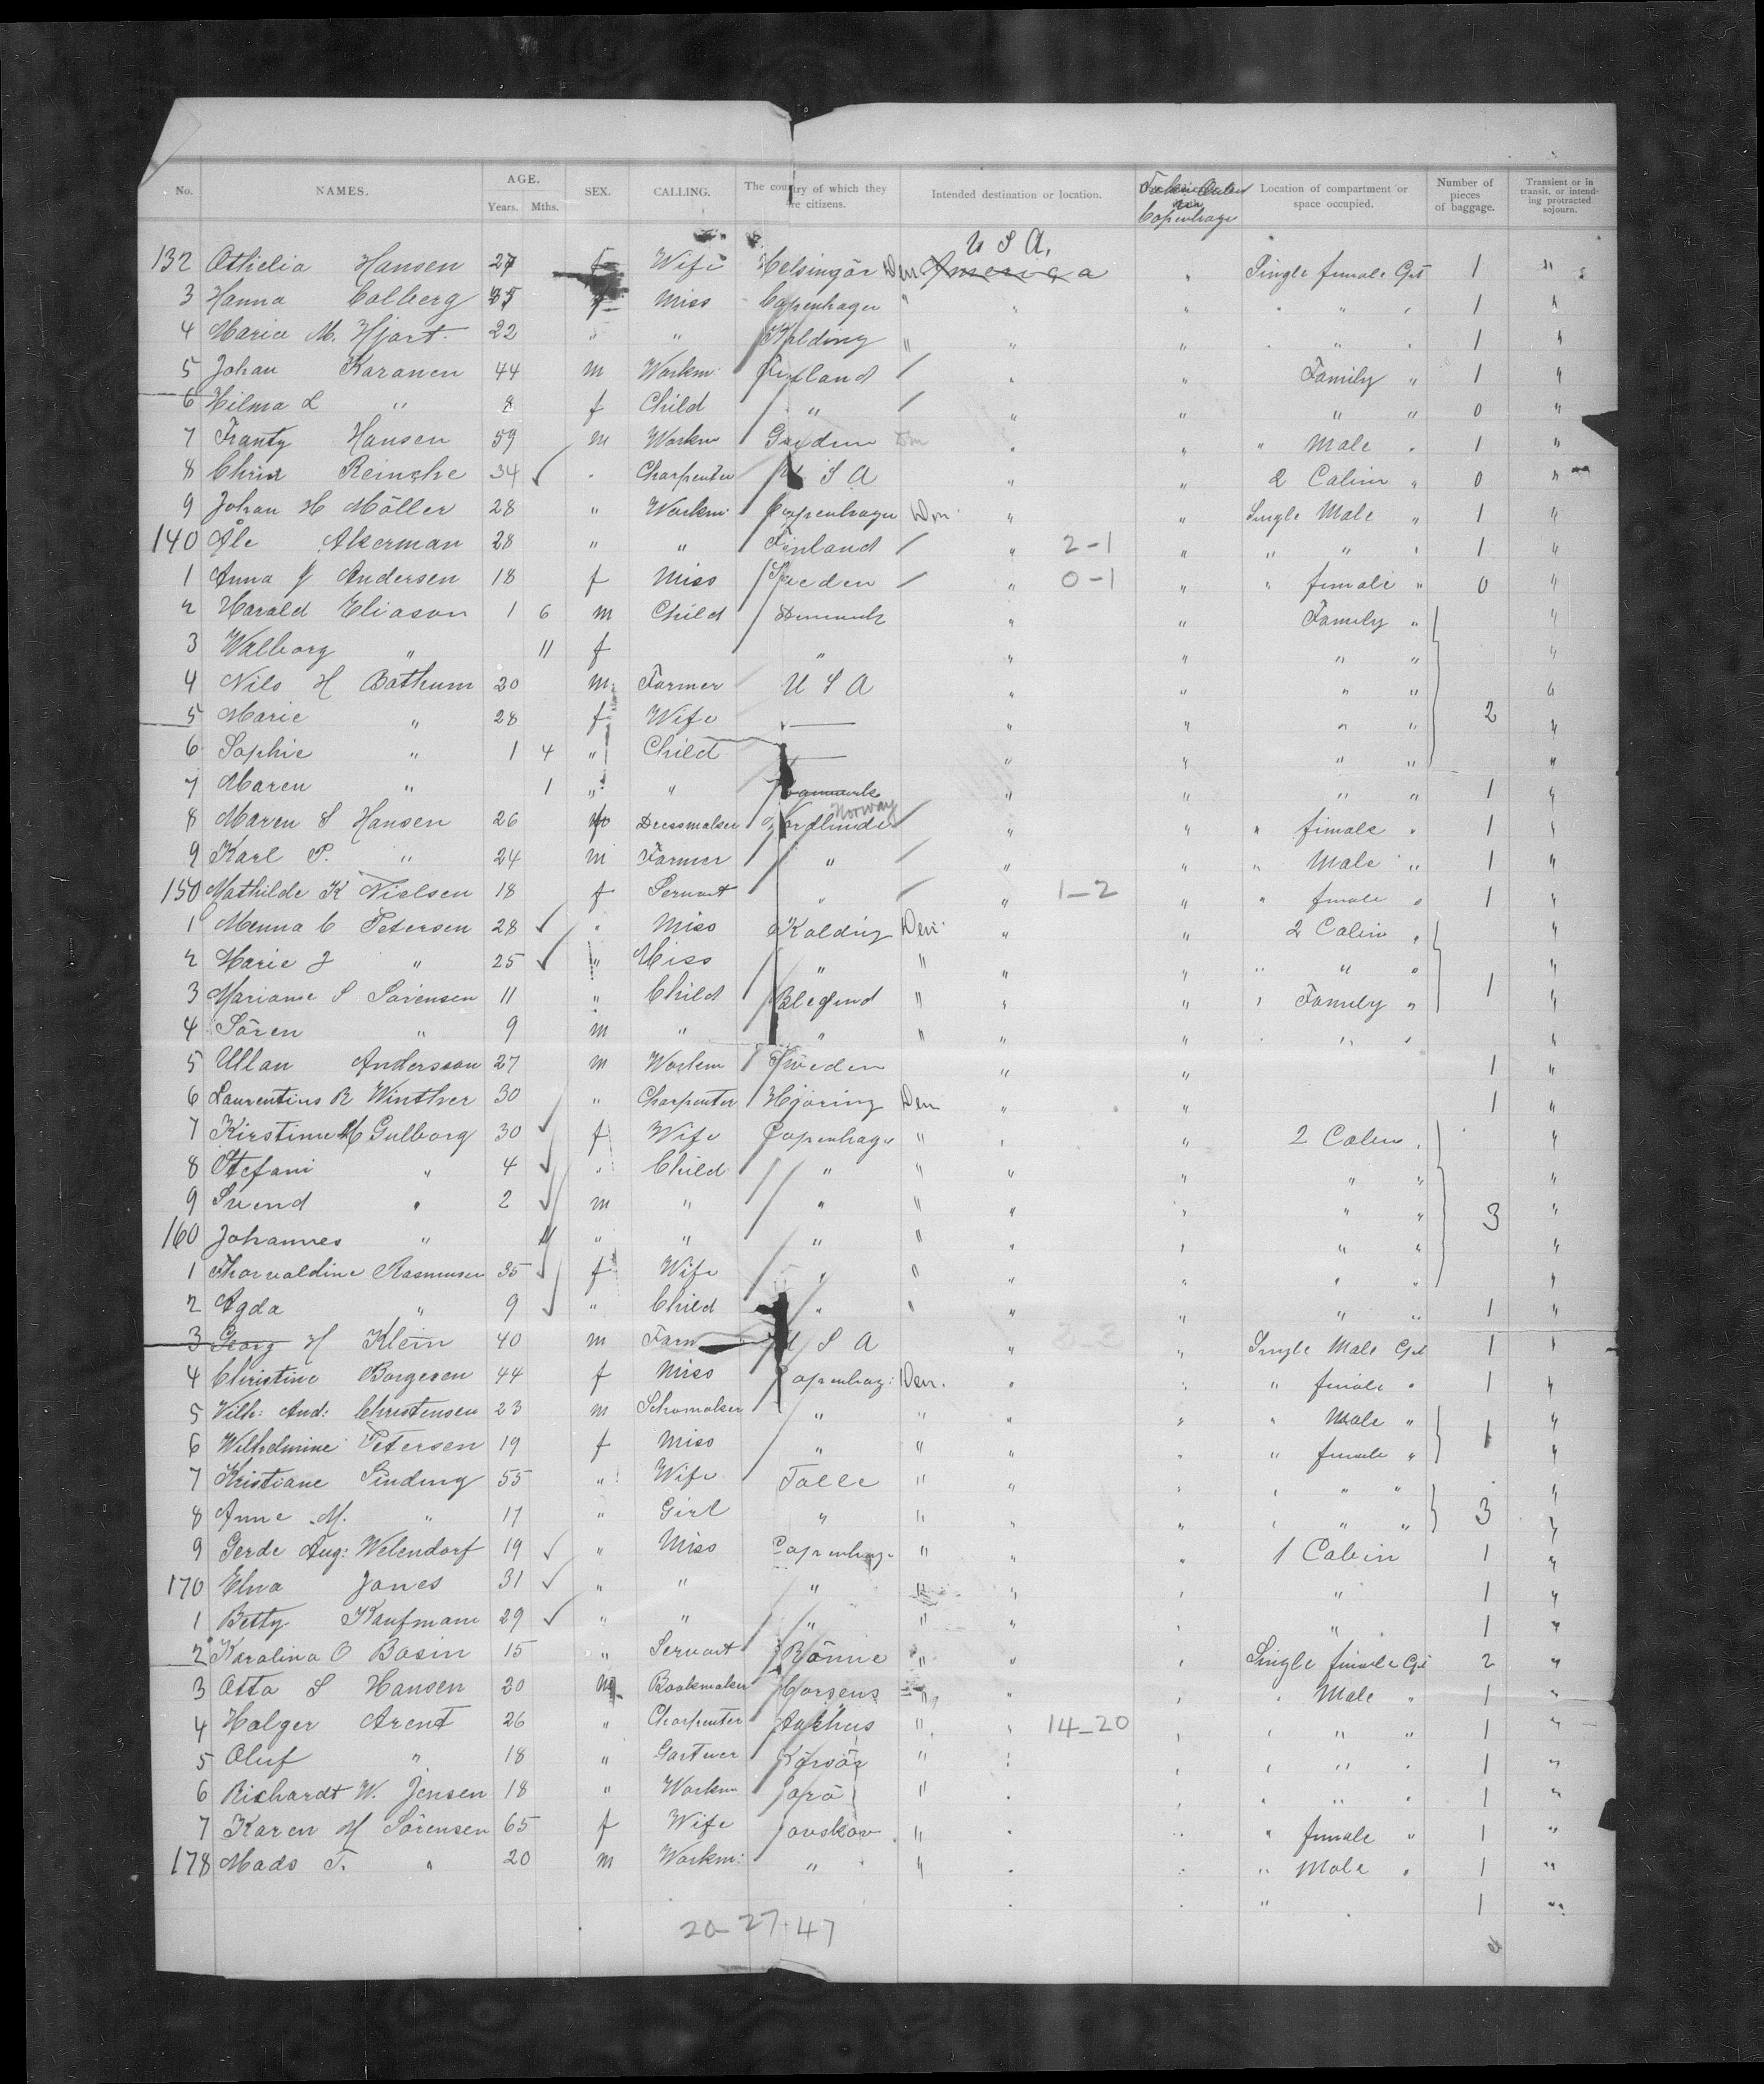 No. NAMES. AGE. Years. Mths. SEX. CALLING. The country of which they are citizens. Intended destination or location. Location of compartment or space occupied. Number of pieces of baggage. Transient or in transit, or intending protracted sojourn.
Copenhagen
U S A.
132 Othielia Hansen 27 f Wife Helsingör Den America " Single female Gst 1 "
3 Hanna Colberg 35 f Miss Copenhagen " " " " " " 1 "
4 Maria M. Hjort. 22 " " Kolding " " " " " " 1 "
5 Johan Karanen 44 m Workm: Finland / " " Family " 1 "
6 Hilma L " 8 f Child " / " " " " 0 "
7 Frantz Hansen 59 m Workm Sweden " " " Male " 1 "
8 Christ Reinche 34 ✓ " Charpenter U S A " " 2 Cabin " 0 "
9 Johan H Möller 28 " Workm: Copenhagen Den: " " Single Male " 1 "
140 Åle Akerman 28 " " Finland / " 2-1 " " " " 1 "
1 Anna J Andersen 18 f Miss Sweden / " 0-1 " " female " 0 "
2 Harald Eliason 1 6 m Child Denmark " " Family " "
3 Walborg " 11 f " " " " " "
4 Nils H Bothum 30 m. Farmer U S A " " " " "
5 Marie " 28 f Wife — " " " " 2 "
6 Sophie " 1 4 " Child — " " " " "
7 Maren " 1 " " Danmark " " " " 1 "
8 Maren S Hansen 26 Dressmaker Norway / " " " female " 1 "
9 Karl P. " 24 m Farmer " / " " " Male " 1 "
150 Mathilde K Nielsen 18 f Servant " / " 1-2 " " female " 1 "
1 Menna C Petersen 28 ✓ " Miss Kolding Den: " " 2 Cabin " "
2 Marie J " 25 ✓ " Miss " " " " " " " "
3 Mariane S Sørensen 11 " Child " " " " Family " 1 "
4 Sören " 9 m " " " " " " "
5 Ullan Andersson 27 m Workm Sweden " " 1 "
6 Laurentius R Winther 30 " Charpenter Hjöring Den " " 1 "
7 Kirstine M Gulborg 30 ✓ f Wife Copenhage " " " 2 Cabin "
8 Stefani " 4 ✓ " Child " " " " " " "
9 Svend " 2 ✓ m " " " " " " " 3 "
160 Johannes " 11 " " " " " " " " "
1 Thorvaldine Rasmussen 35 ✓ f Wife " " " " " " "
2 Agda " 9 ✓ " Child " " " " " " 1 "
3 Georg H Klein 40 m Farm U S A " " Single Male Gst 1 "
4 Christine Borgesen 44 f Miss Copenhag: Den. " " " female " 1 "
5 Vilh: And: Christensen 23 m Schomaker " " " " " Male " "
6 Wilhelmine Petersen 19 f Miss " " " " " female " 1 "
7 Kristiane Sinding 55 " Wife " " " " " " "
8 Anne M. " 17 " Girl " " " " " " " 3 "
9 Gerde Aug: Welendorf 19 ✓ " Miss Copenhag. " " " 1 Cabin 1 "
170 Elna Jones 31 ✓ " " " " " " " 1 "
1 Betty Kaufmann 29 ✓ " " " " " " " 1 "
2 Karolina O Bosin 15 " Servant Rönne " " " Single female Gst 2 "
3 Otto S Hansen 20 m Bookmaker Horsens " " " " Male " 1 "
4 Holger Arent 26 " Charpenter Aarhus " " 14-20 " " " " 1 "
5 Oluf " 18 " Gartner Körsör " " " " " " 1 "
6 Richardt W. Jensen 18 " Workm Sorö " " " " " " 1 "
7 Karen M Sörensen 65 f Wife " " " " female " 1 "
178 Mads T. " 20 m Workm: " " " " " Male " 1 "
" 1 "
20-27 47